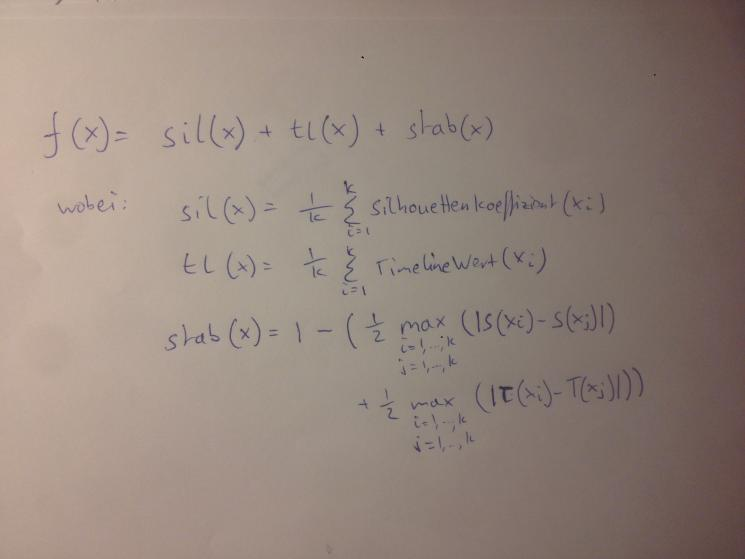 f(x) = sil(x) + tl(x) + stab(x)
wobei: sil(x) = 1/k ∑_{i=1}^{k} Silhouettenkoeffizient(xi)
tl(x) = 1/k ∑_{i=1}^{k} TimelineWert(xi)
stab(x) = 1 - ( 1/2 max_{i=1,..,k j=1,..,k} (|S(xi) - S(xj)|)
+ 1/2 max_{i=1,..,k j=1,..,k} (|T(xi) - T(xj)|))